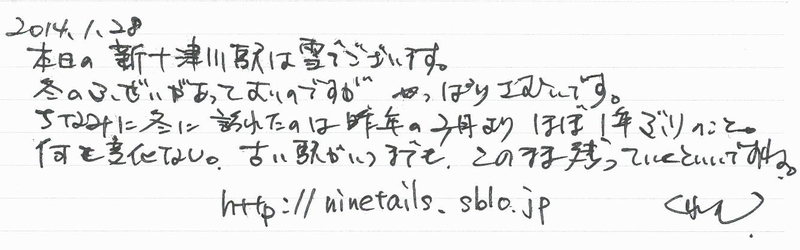 2014.1.28
本日の新十津川駅は雪でございます。
冬のふぜいがあってよいのですが やっぱりさむいです。
ちなみに冬に訪れたのは昨年の2月より ほぼ1年ぶりのこと。
何も変化なし。古い駅がいつまでも、このまま残っていくといいですね。
http://ninetails.sblo.jp